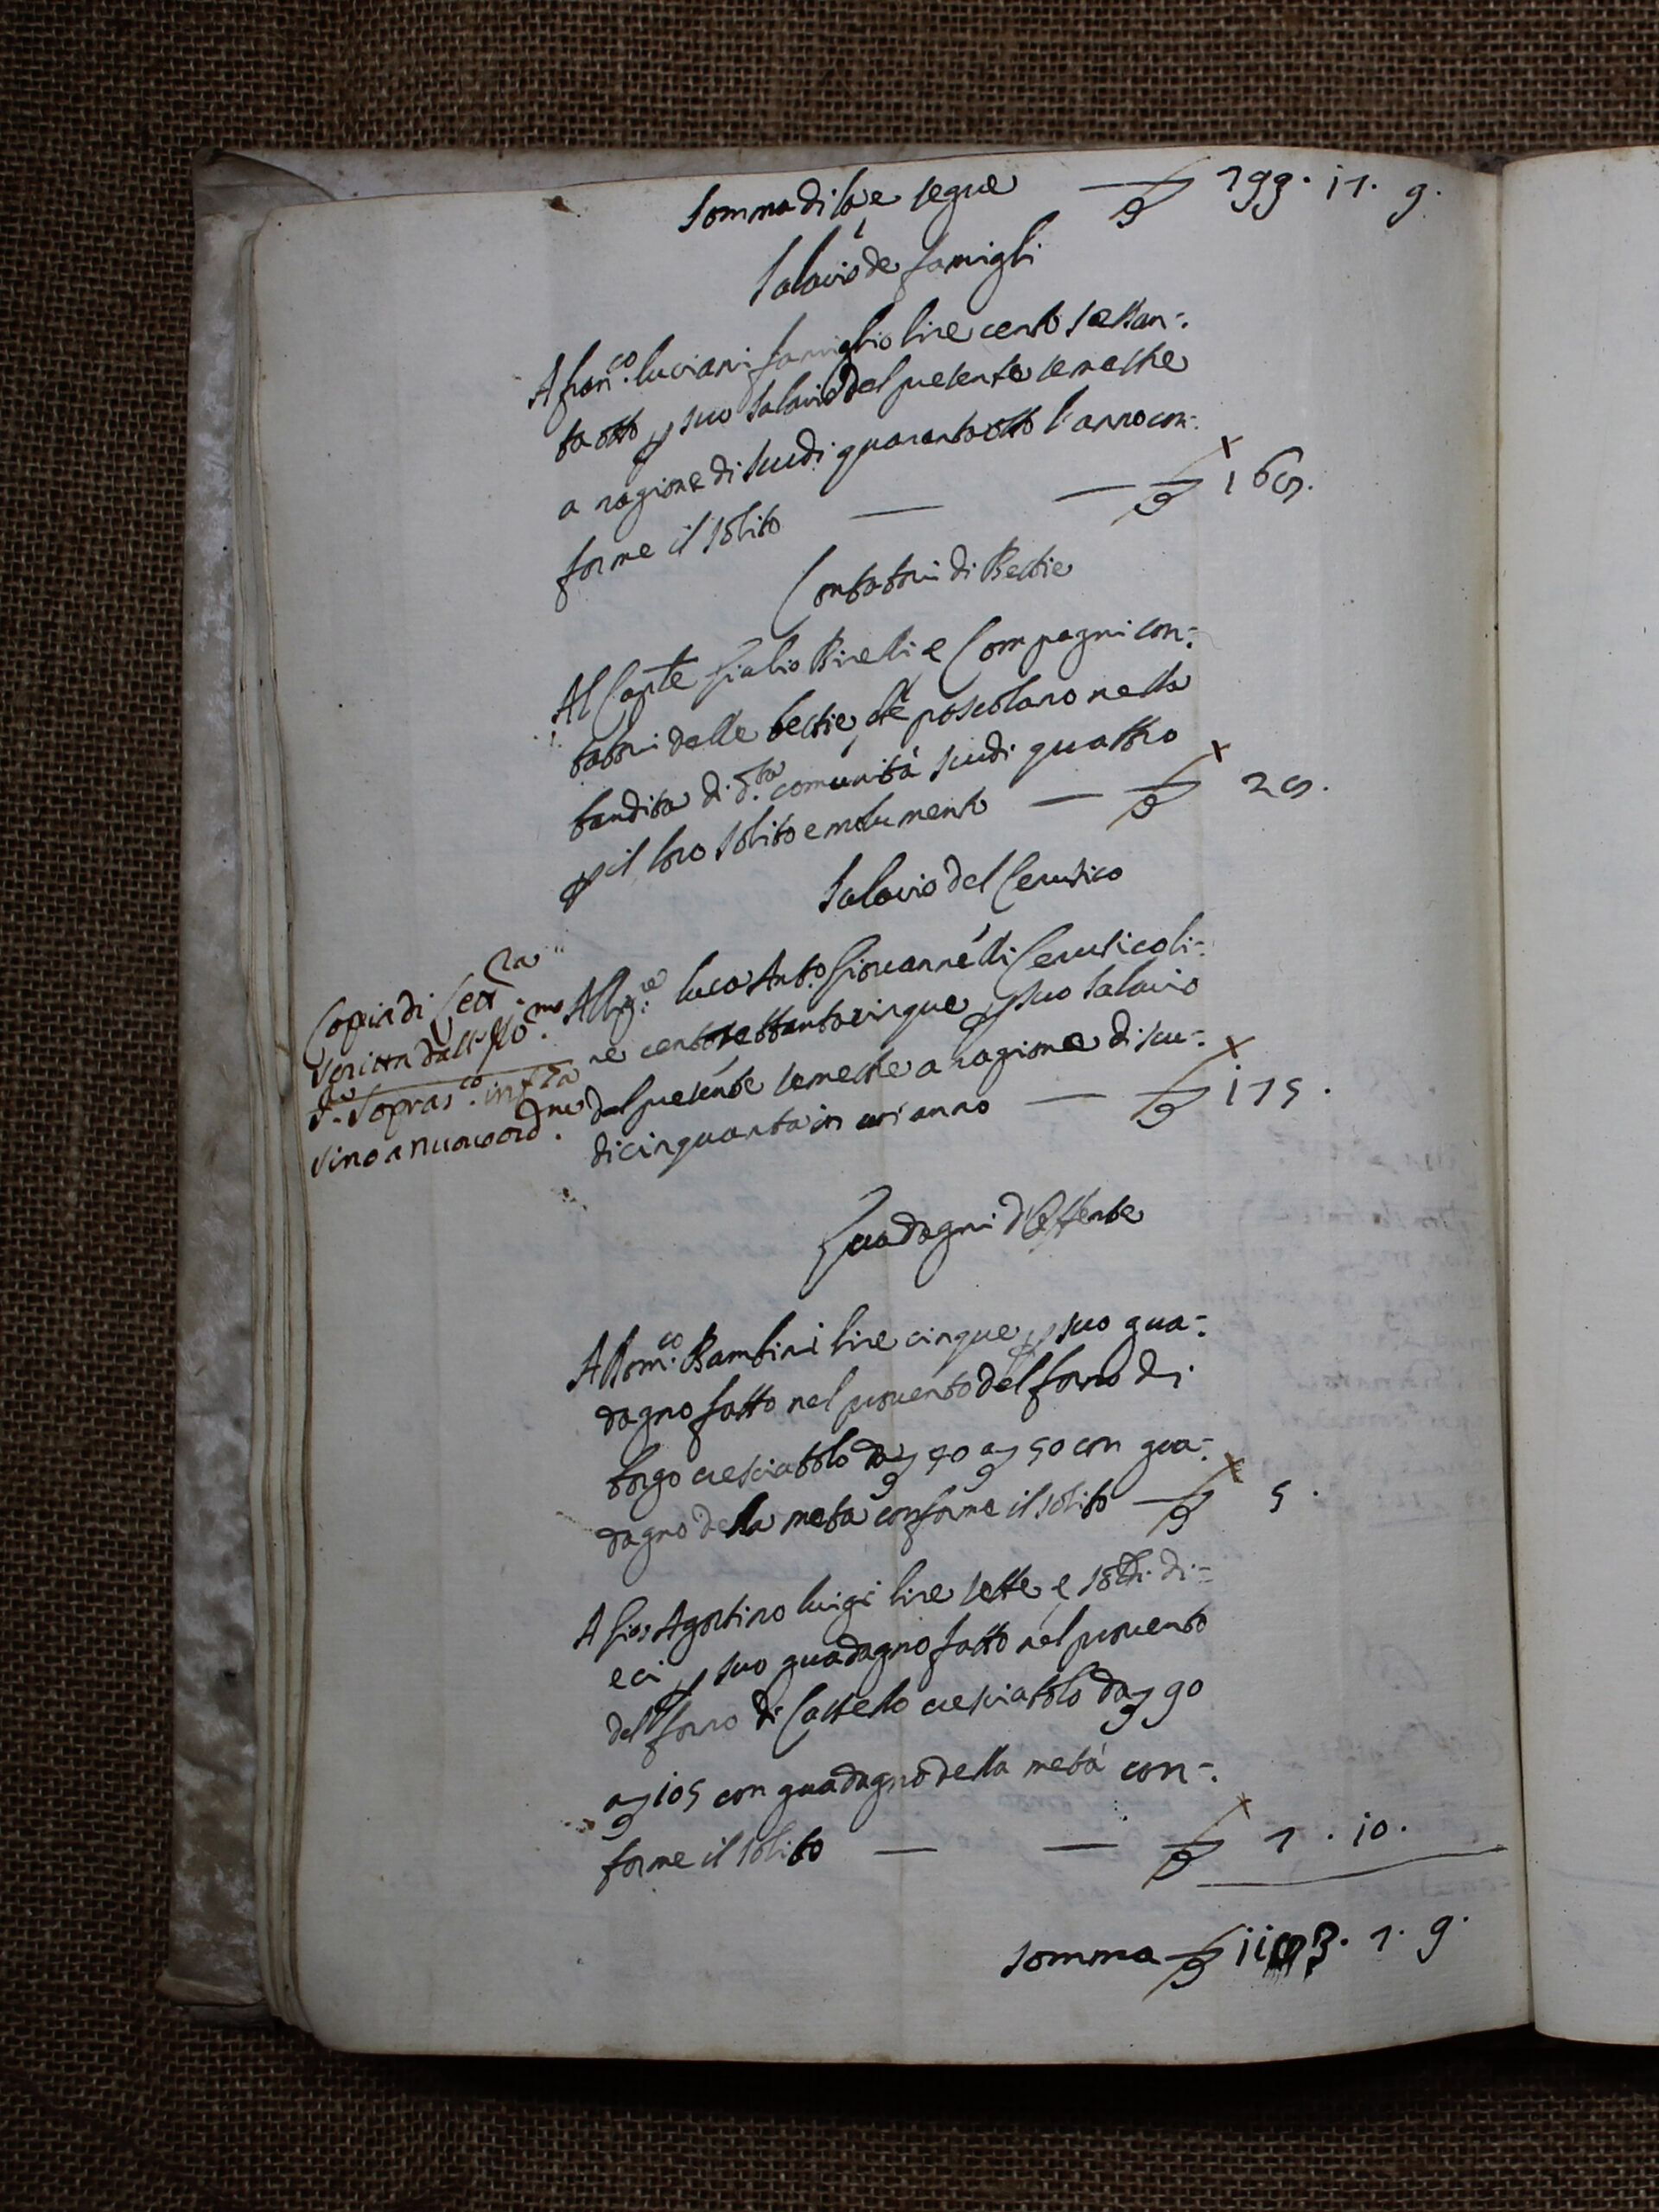 Somma di là e segue — £ 799. 11. 9.
Salario de famigli
A Fran.co Luciani famiglio lire cento sessan-
ta otto per suo salario del presente semestre
a ragione di scudi quarantaotto l'anno con-
forme il solito — — £ 168.
Contatori di Bestie
Al Cap.te Giulio Birelli e Compagni con-
tatori delle bestie che pascolano nella
bandita di d.ta comunità scudi quattro
per il loro solito emolumento — £ 28.
Salario del Cerusico
All' Luca Ant.o Giovannelli Cerusico li-
re cento settantacinque per suo salario
del presente semestre a ragione di scu-
di cinquanta in un anno — £ 175.
Copia di
scritta dall'
d. Sopras.
sino a nuovo ord.ne
Guadagni d'Offerte
A Dom.co Bambini lire cinque per suo gua-
dagno fatto nel provento del forno di
borgo cresciutolo da £ 40 a £ 50 con gua-
dagno della metà conforme il solito — £ 5.
A Gio: Agostino Luigi lire sette e soldi di-
eci per suo guadagno fatto nel provento
del forno di Castello cresciutolo da £ 90
a £ 105 con guadagno della metà con-
forme il solito — — £ 7. 10.
Somma £ 1183. 1. 9.